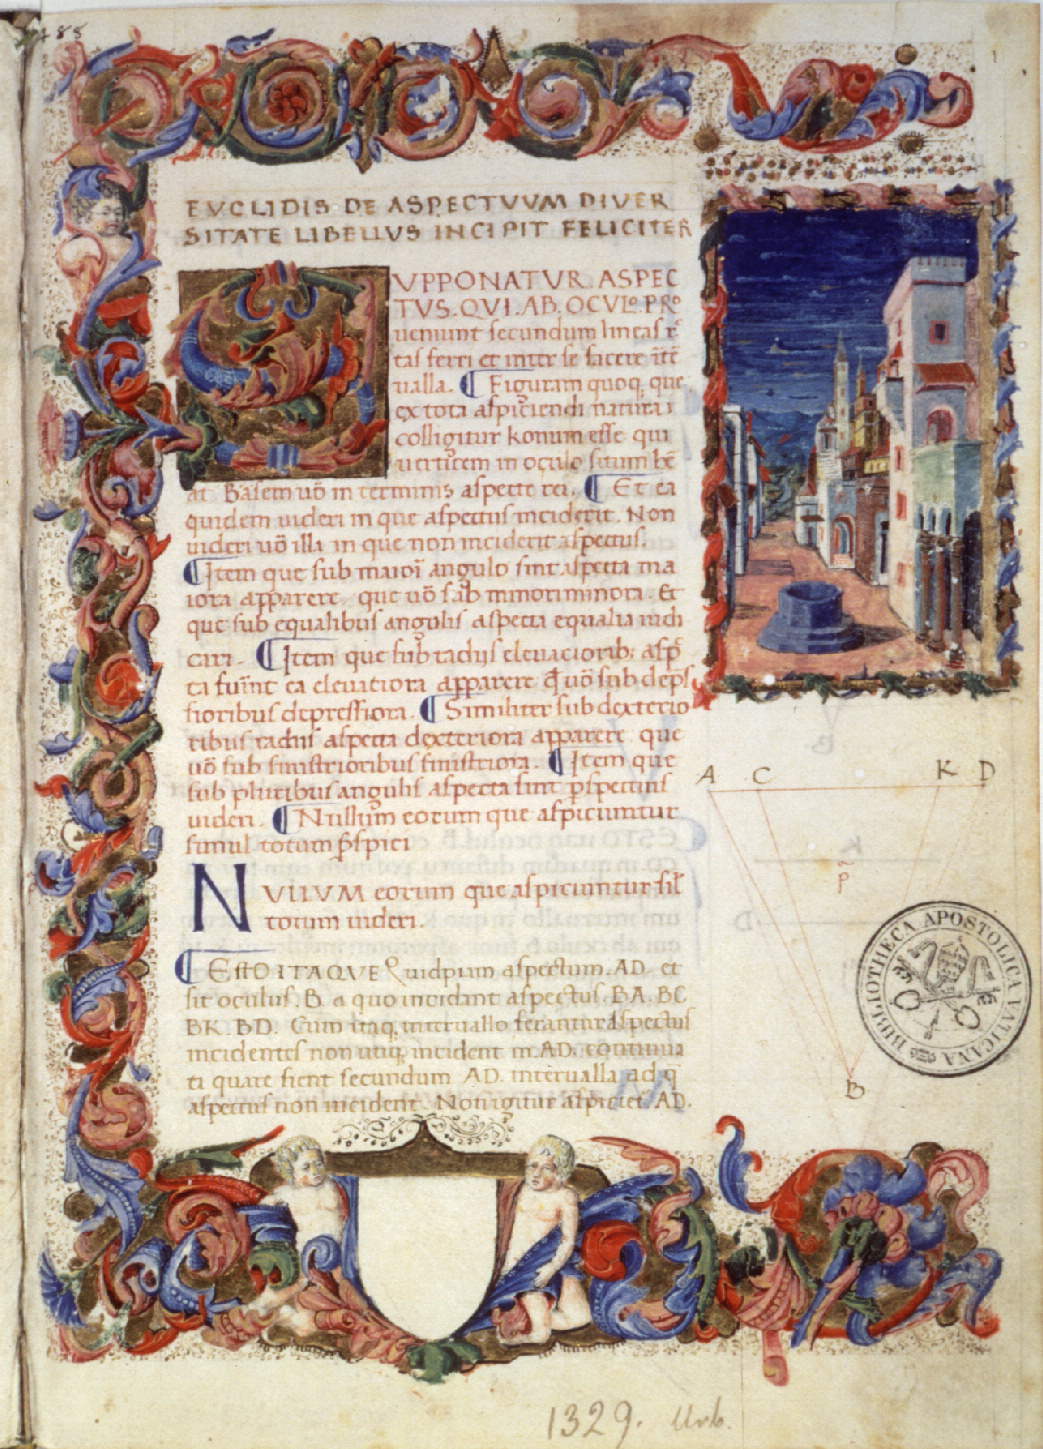 185
EVCLIDIS DE ASPECTVVM DIVER
SITATE LIBELLVS INCIPIT FELICITER
SVPPONATVR ASPEC
TVS. QVI. AB. OCVLO. PRO
ueniunt secundum lineas
tas ferri et inter se facere
ualla. ¶ Figuram quoq; que
ex tota aspiciendi natura
colligitur konum esse qui
uerticem in oculo situm
at. Basem uō in terminis aspecte rei. ¶ Et ea
quidem uideri in que aspectus inciderit. Non
uideri uō illa in que non inciderit aspectus.
¶ Item que sub maiori angulo sint aspecta ma
iora apparere. que uō sub minori minora. Et
que sub equalibus angulis aspecta equalia iudi
cari. ¶ Item que sub radijs eleuatiorib;
ta ea eleuatiora apparere uō sub
sioribus depressiora. ¶ Similiter sub dexterio
ribus radiis aspecta dexteriora apparere que
uō sub sinistrioribus sinistriora. ¶ Item que
sub pluribus angulis aspecta sint
uideri. ¶ Nullum eorum que aspiciuntur
simul totum
NVLLVM eorum que aspiciuntur
totum uideri.
¶ ESTO ITAQVE quidpiam aspectum. AD. et
sit oculus. B. a quo incidant aspectus. BA. BC.
BK. BD. Cum itaq; interuallo ferantur aspectus
incidentes non utiq; incident in. AD. continua
ti quare fient secundum AD. interualla ad
aspectus non incident. Non igitur aspiciet. AD.
A C K D
B
BIBLIOTHECA APOSTOLICA VATICANA
1329. Urb.